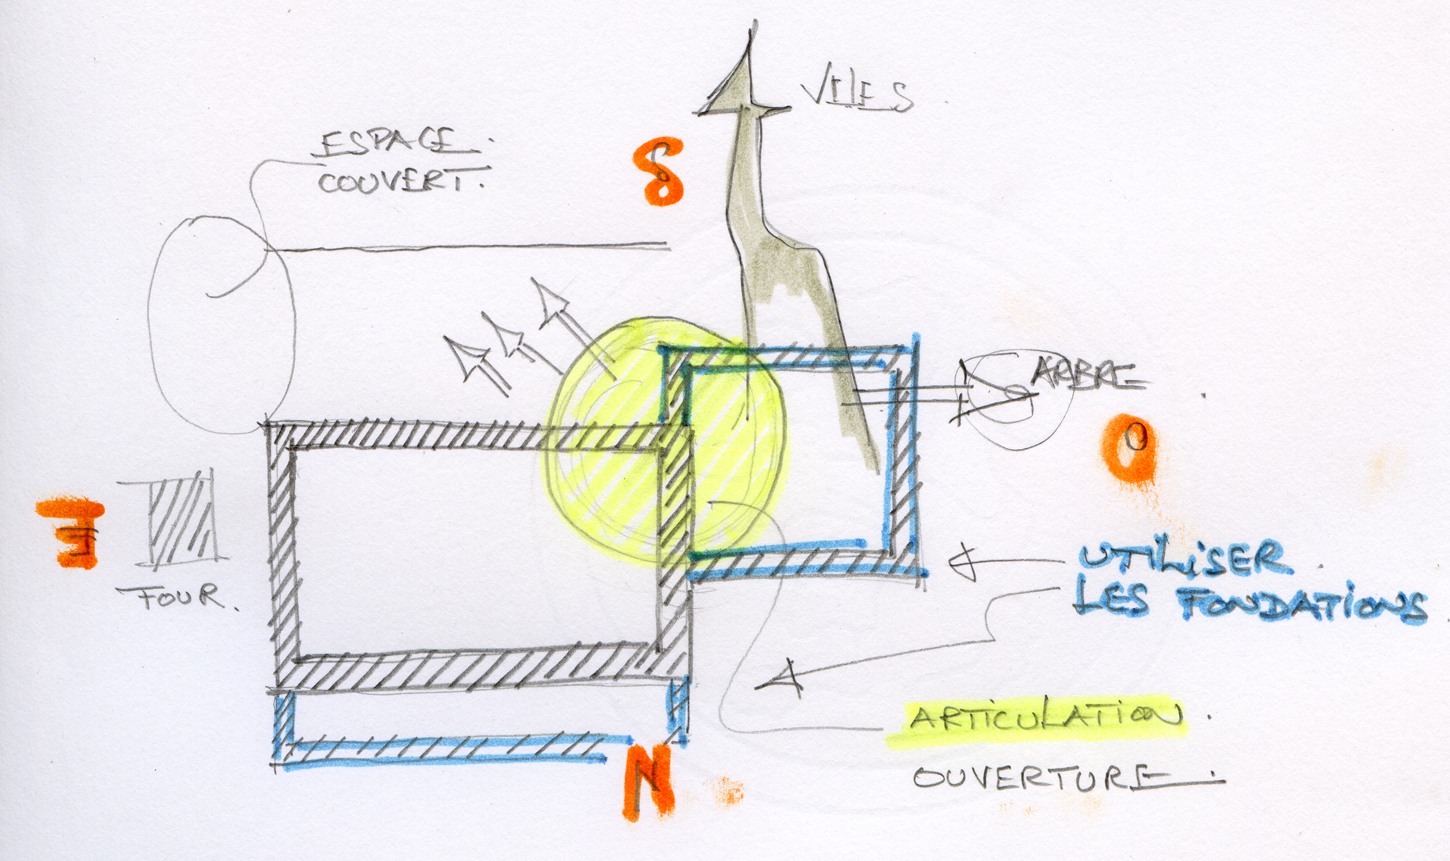 VUES
ESPACE.
COUVERT.
S
ARBRE
O
E
FOUR.
UTILISER.
LES FONDATIONS.
ARTICULATION.
OUVERTURE.
N